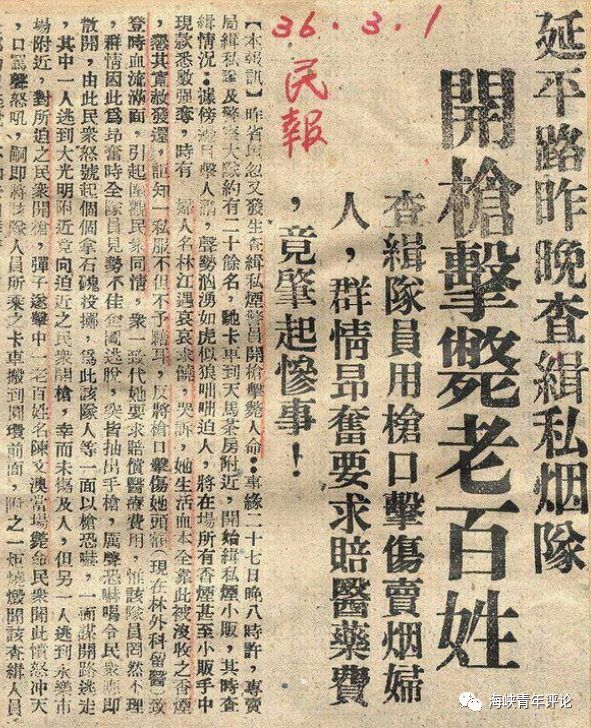 延平路昨晚查緝私烟隊
開槍擊斃老百姓
查緝隊員用槍口擊傷賣烟婦
人，群情昂奮要求賠醫藥費
，竟肇起慘事！
36.3.1
民報
【本報訊】昨省垣忽又發生查緝私煙警員開槍擊斃人命：事緣二十七日晚八時許，專賣
局緝私隊及警察大隊約有二十餘名，馳卡車到天馬茶房附近，開始緝私煙小販，其時查
緝情況：據傍目擊人謂，聲勢洶湧如虎似狼咄咄迫人，將在場所有香煙甚至小販手中
現款悉數强奪，時有一婦人名林江遇哀哀求饒，哭訴，她生活血本全靠此被沒收之香煙
，懇其寬赦發還，詎知一私服不但不予耳，反將槍口擊傷她頭額（現在林外科留醫）致
登時血流滿面，引起傍觀民衆同情，衆一致代她要求賠償醫療費用，惟該隊員罔然不理
，群情因此爲昂奮時全隊員見勢不佳企圖逃脫，突皆抽出手槍，厲聲恐嚇喝令民衆立即
散開，由此民衆怒號起個個拿石磈投擲，爲此該隊人等一面以槍恐嚇，一面謀開路逃走
，其中一人逃到大光明附近竟向迫近之民衆開槍，幸而未傷及人，但另一人逃到永樂市
場附近，對所迫之民衆開槍，彈子遂擊中一老百姓名陳文澳當場斃命民衆聞此憤怒冲天
，口罵聲怒吼，嗣即將該隊人員所乘之卡車搬到圓環前面，附之一炬燒燬聞該查緝人員
海峡青年评论